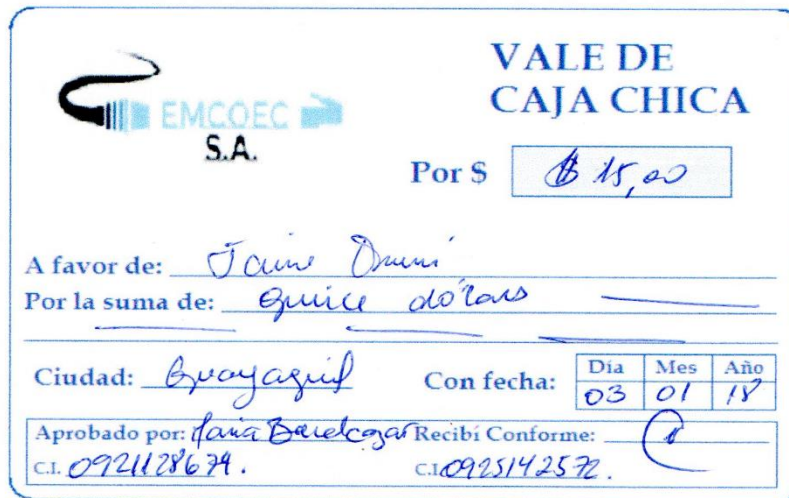 EMCOEC
S.A.
VALE DE
CAJA CHICA
Por $ $ 15,00
A favor de: Jaime
Por la suma de: Quince dólares
Ciudad: Guayaquil Con fecha: Día Mes Año
03 01 18
Aprobado por: Maria Recibí Conforme:
C.I. 0921128674. C.I. 0925142572.